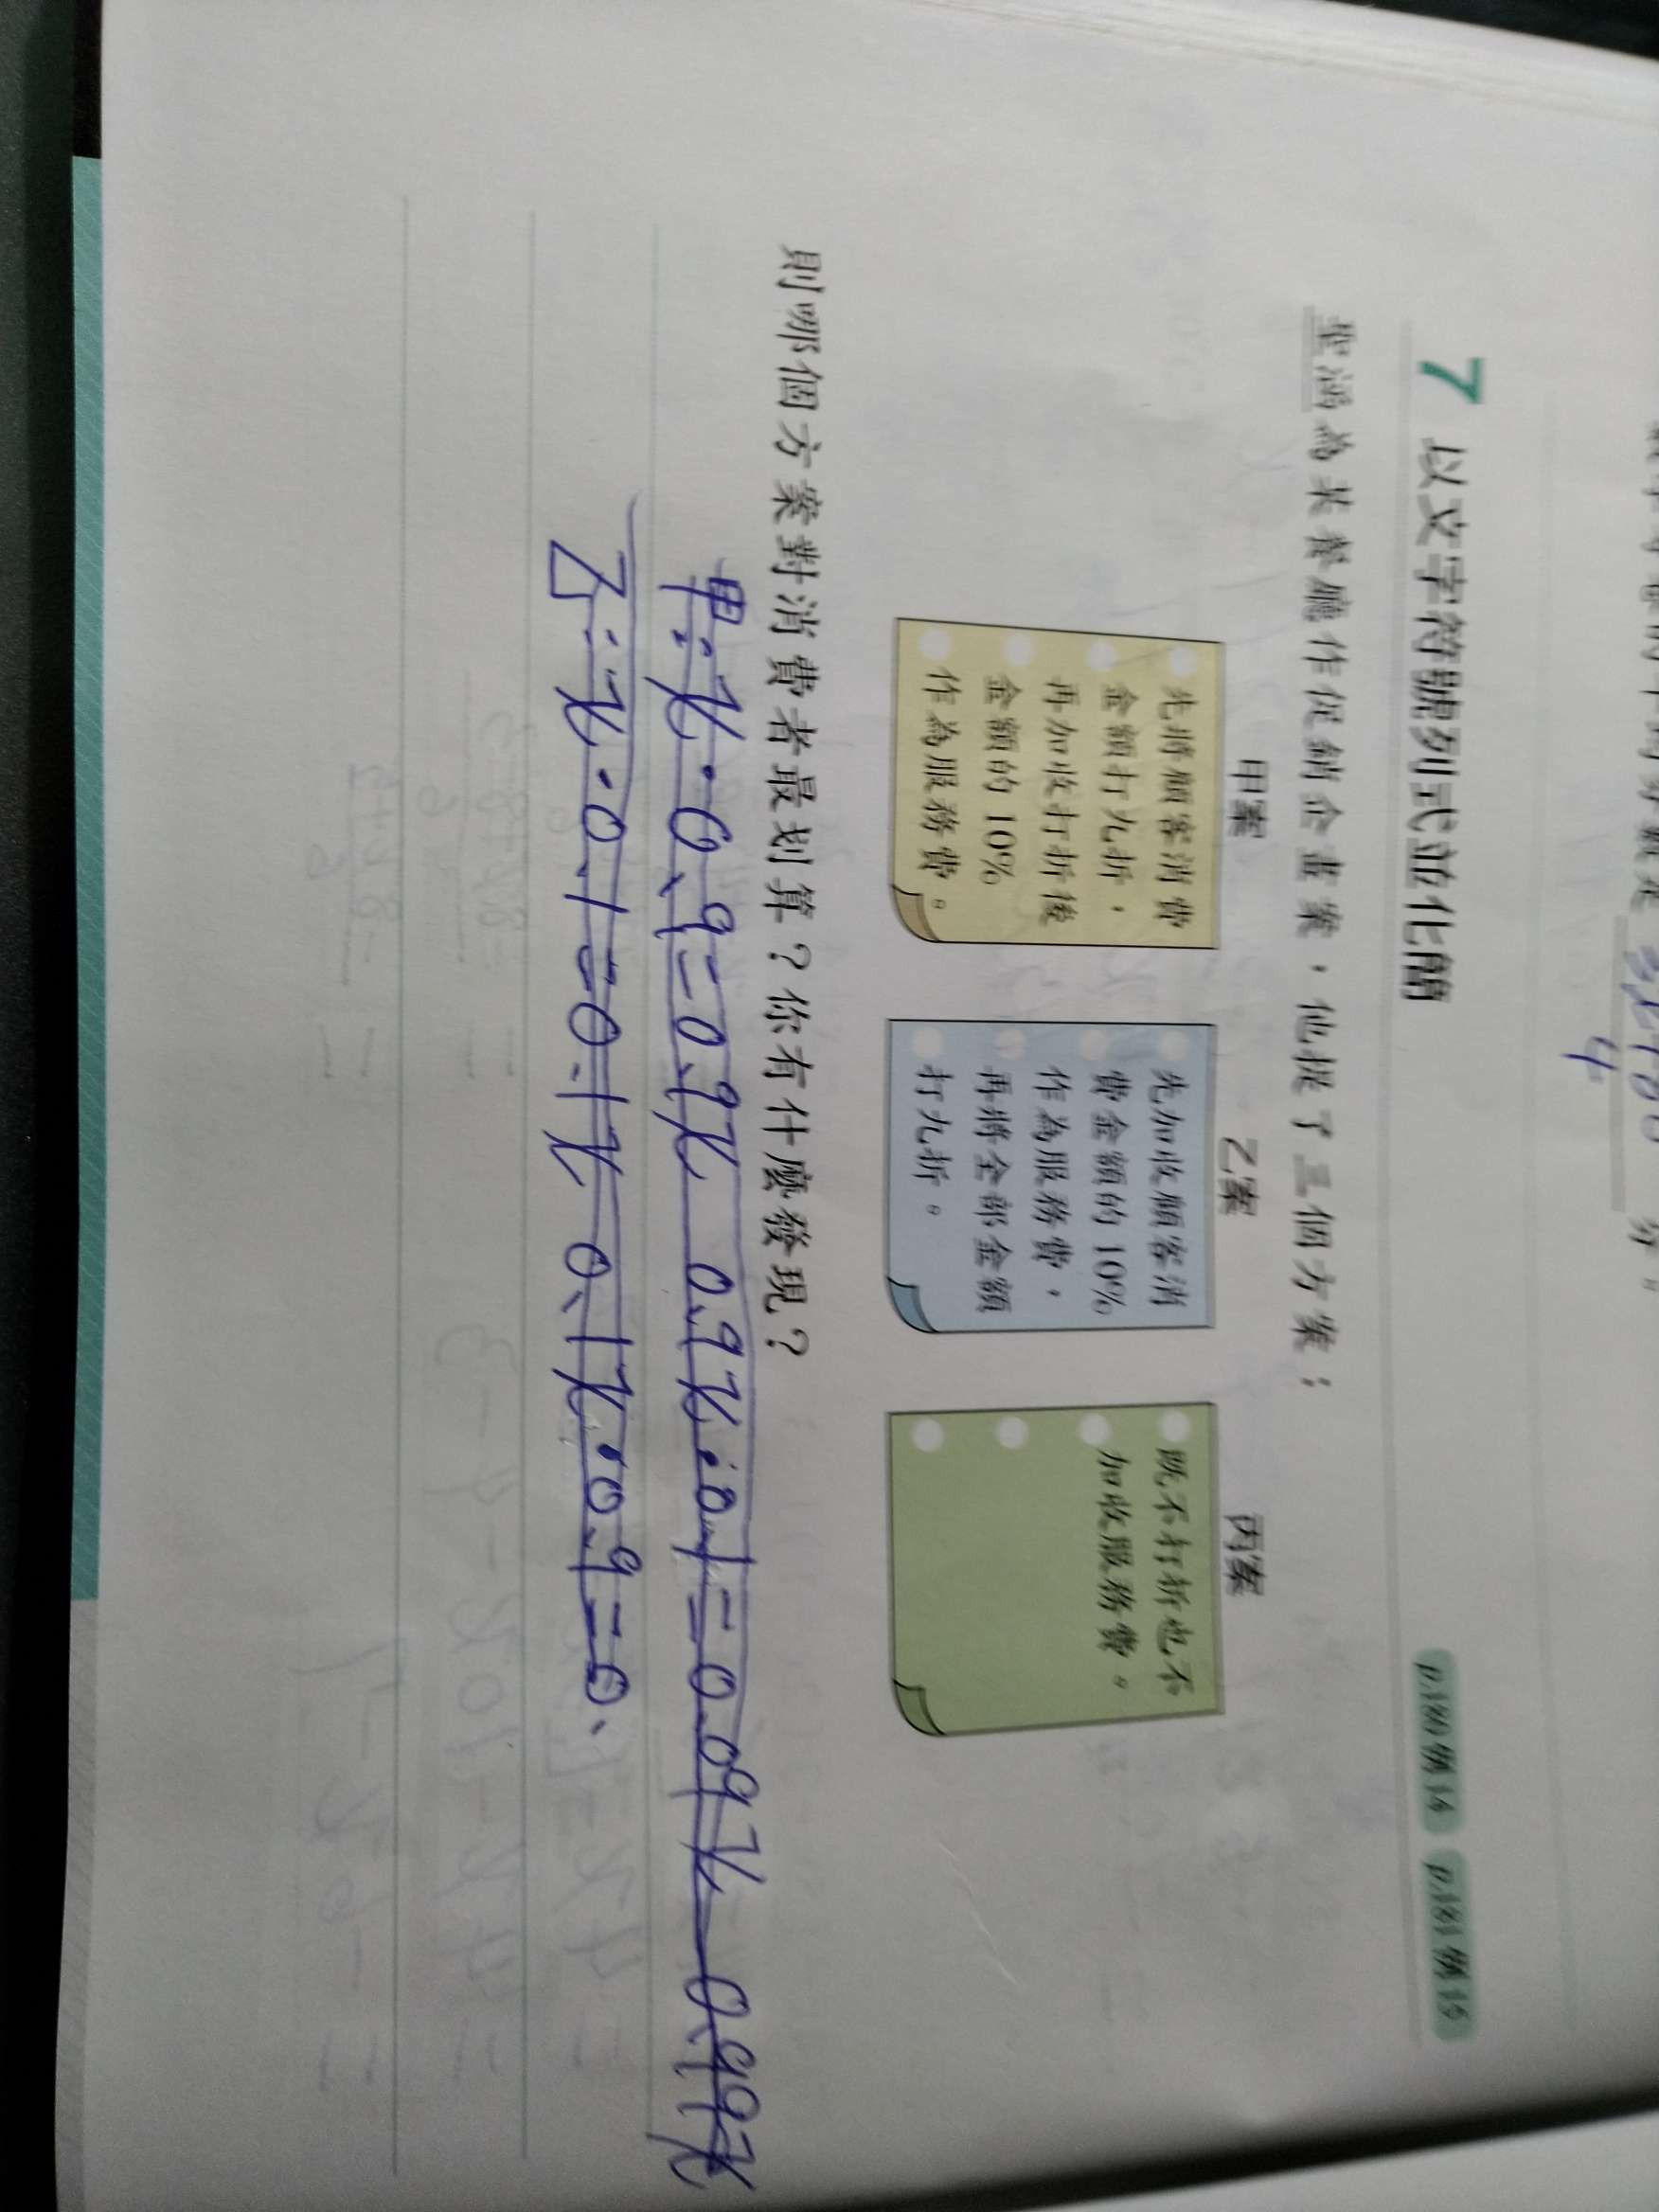 4
分。
7 以文字符號列式並化簡
p.180 例 14 p.181 例 15
為某餐廳作促銷企畫案，他提了三個方案：
甲案
先將顧客消費
金額打九折，
再加收打折後
金額的 10%
作為服務費。
乙案
先加收顧客消
費金額的 10%
作為服務費，
再將全部金額
打九折。
丙案
既不打折也不
加收服務費。
則哪個方案對消費者最划算？你有什麼發現？
甲：x·0.9=0.9x 0.9x·0.1=0.09x 0.99x
乙：x·0.1=0.1x 0.1x·0.9=0.